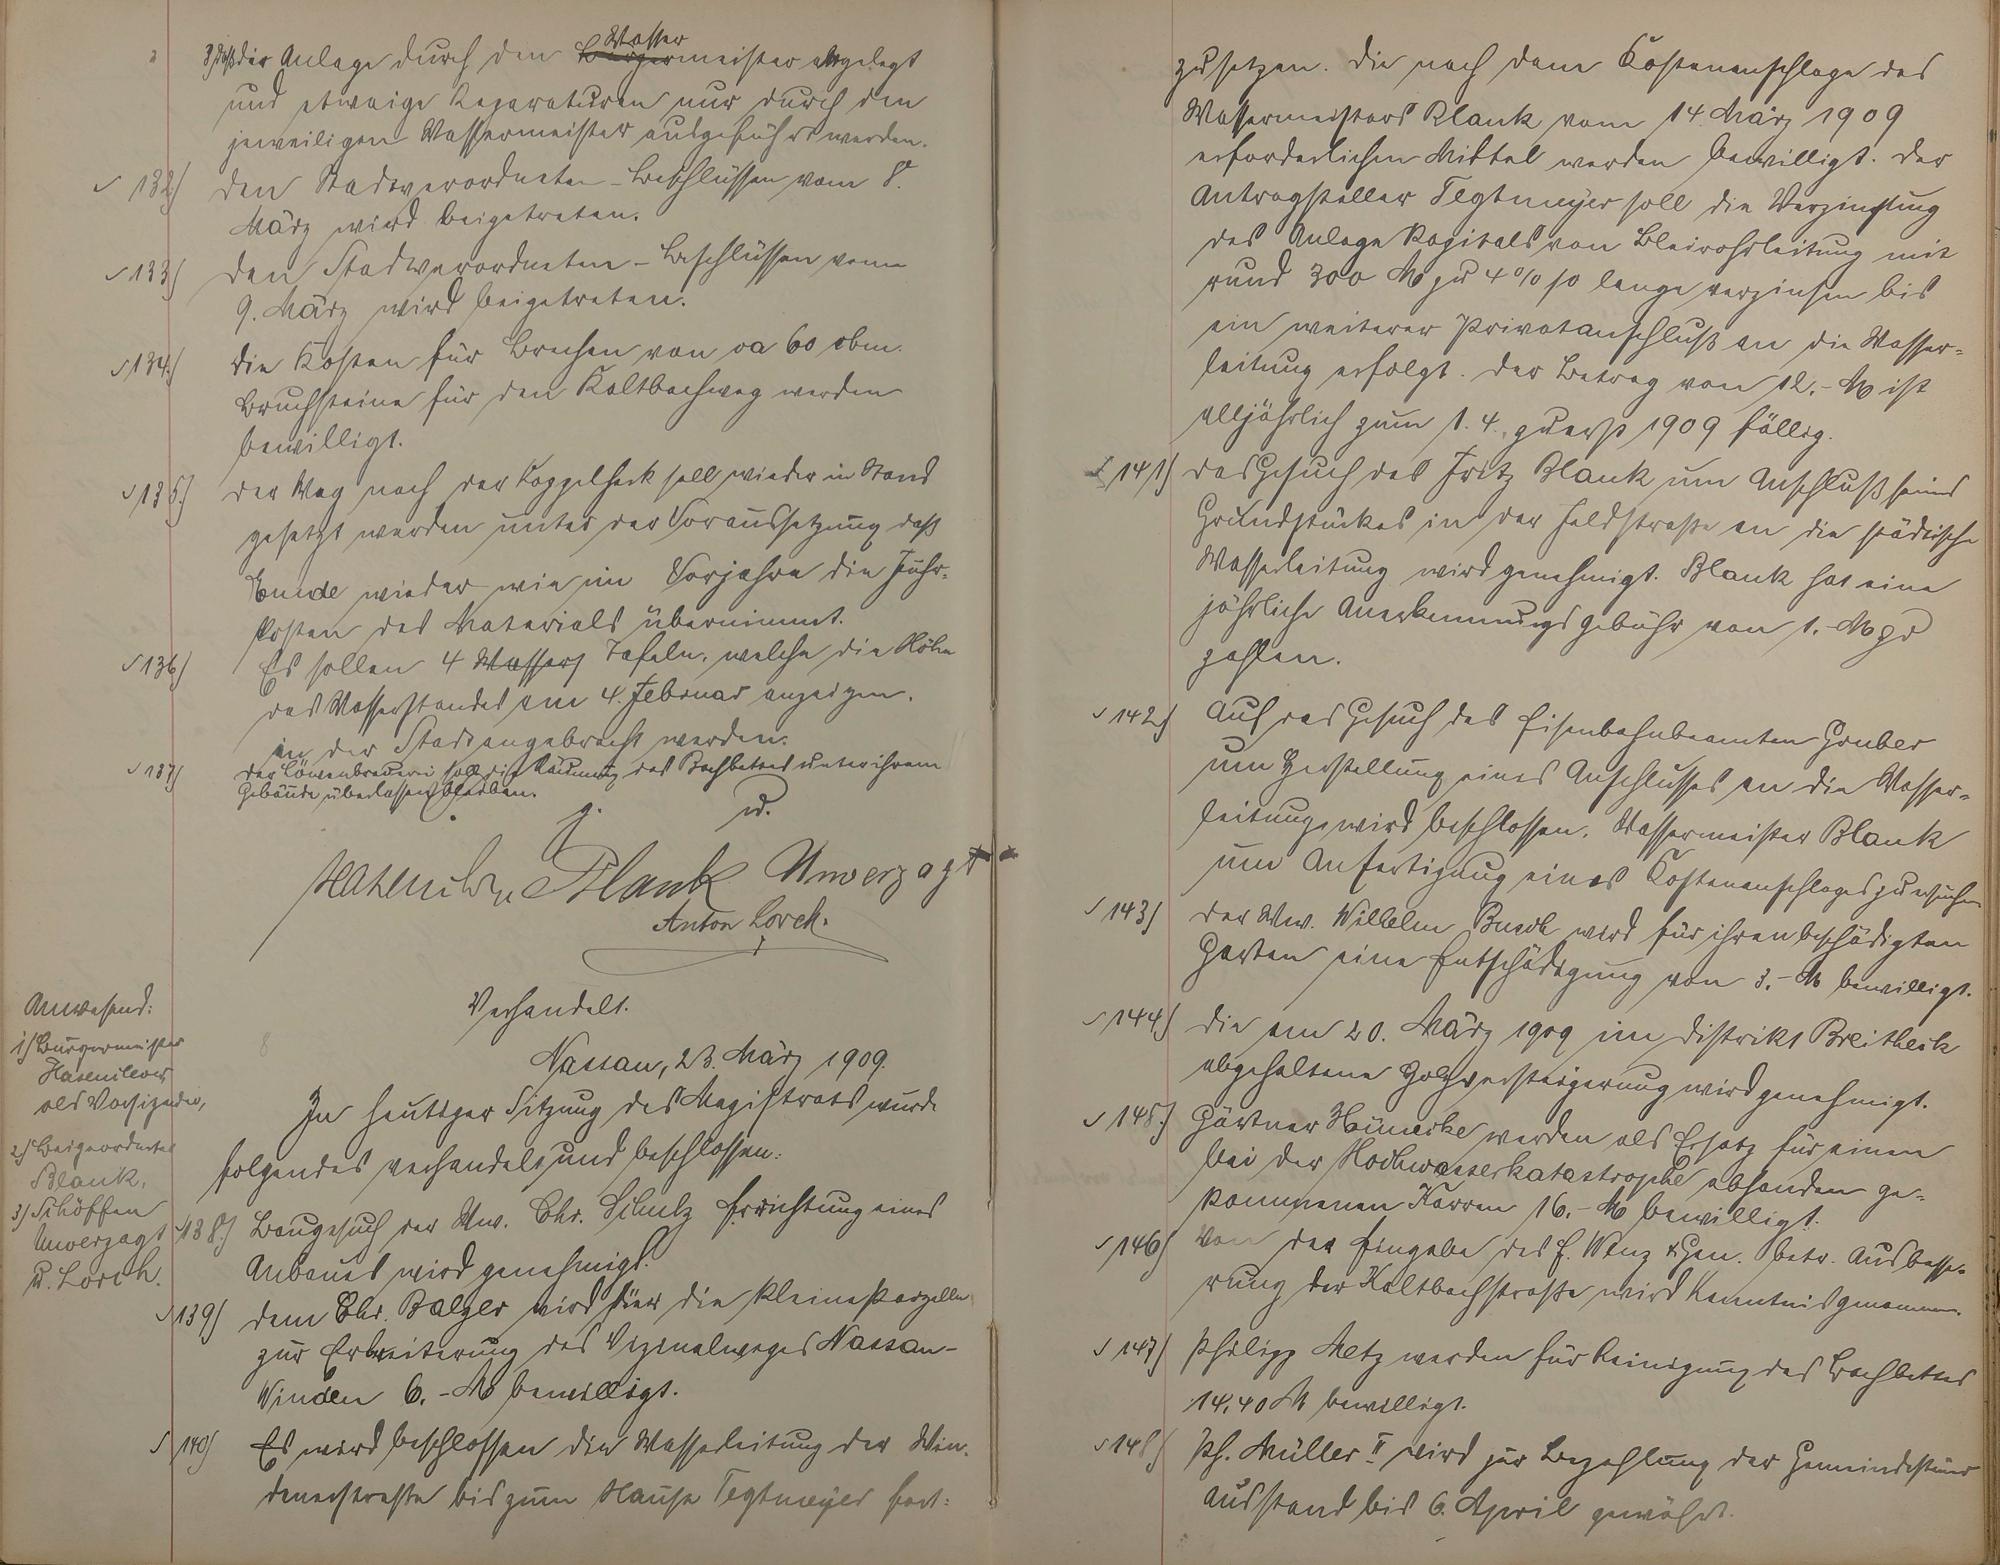 3) daß die Anlage durch den Wassermeister angelegt
und etwaige Reparaturen nur durch den
jeweiligen Wassermeister ausgeführt werden.
132) Den Stadtverordneten-Beschlüssen vom 8.
März wird beigetreten.
133) Den Stadtverordneten-Beschlüssen vom
9. März wird beigetreten.
134) Die Kosten für Brechen von ca 60 cbm.
Bruchsteine für den Kaltbachweg werden
bewilligt.
135.) Der Weg nach der Koppelheck soll wieder in Stand
gesetzt werden unter der Voraussetzung daß
wieder wie im Vorjahre die Fuhr-
kosten des Materials übernimmt.
136) Es sollen 4 Tafeln, welche die Höhe
des Wasserstandes am 4. Februar anzeigen,
in der Stadt angebracht werden.
137) Der Löwenbrauerei soll die Räumung des Bachbettes unter ihrem
Gebäude überlassen bleiben.
g. u.
Hasenclever Blank Unverzagt
Anton Lorch.
Verhandelt.
Nassau, 23. März 1909.
Anwesend:
1) Bürgermeister
Hasenclever
als Vorsitzender,
2) Beigeordneter
Blank,
3) Schöffen
Unverzagt
u. Lorch.
In heutiger Sitzung des Magistrats wurde
folgendes verhandelt und beschlossen:
138.) Baugesuch der Ww. Chr. Schulz Errichtung eines
Anbaues wird genehmigt.
139) Dem Chr. Balzer wird für die kleine Parzelle
zur Erbreiterung des Vizinalweges Nassau-
Winden 6.- M bewilligt.
140) Es wird beschlossen die Wasserleitung der Win-
denerstraße bis zum Hause Tegtmeyer fort-
zusetzen. Die nach dem Kostenanschlage des
Wassermeisters Blank vom 14. März 1909
erforderlichen Mittel werden bewilligt. Der
Antragsteller Tegtmeyer soll die Verzinsung
des Anlage Kapitals von Bleirohrleitung mit
rund 300 M zu 4% so lange verzinsen bis
ein weiterer Privatanschluß an die Wasser-
leitung erfolgt. Der Betrag von 12.- M ist
alljährlich zum 1. 4., zuerst 1909 fällig.
141) Das Gesuch des Fritz Blank um Anschluß seines
Grundstückes in der Feldstraße an die städtische
Wasserleitung wird genehmigt. Blank hat eine
jährliche Anerkennungsgebühr von 1.- M zu
zahlen.
142) Auf das Gesuch des Eisenbahnbeamten Gruber
um Herstellung eines Anschlusses an die Wasser-
leitung wird beschlossen, Wassermeister Blank
um Anfertigung eines Kostenanschlages zu ersuchen
143) Der Ww. Wilhelm wird für ihren beschädigten
Garten eine Entschädigung von 3.- M bewilligt.
144) Die am 20. März 1909 im Distrikt Breitheck
abgehaltene Holzversteigerung wird genehmigt.
145.) Gärtner werden als Ersatz für einen
bei der Hochwasserkatastrophe abhanden ge-
kommenen Karren 16.- M bewilligt.
146) Von der Eingabe des E. Winz & Gen. betr. Ausbesse-
rung der Kaltbachstraße wird Kenntnis genommen.
147) Philipp Metz werden für Reinigung des Bachbettes
14,40 M bewilligt.
148) Ph. Müller II wird zur Bezahlung der Gemeindesteuer
Ausstand bis 6. April gewährt.